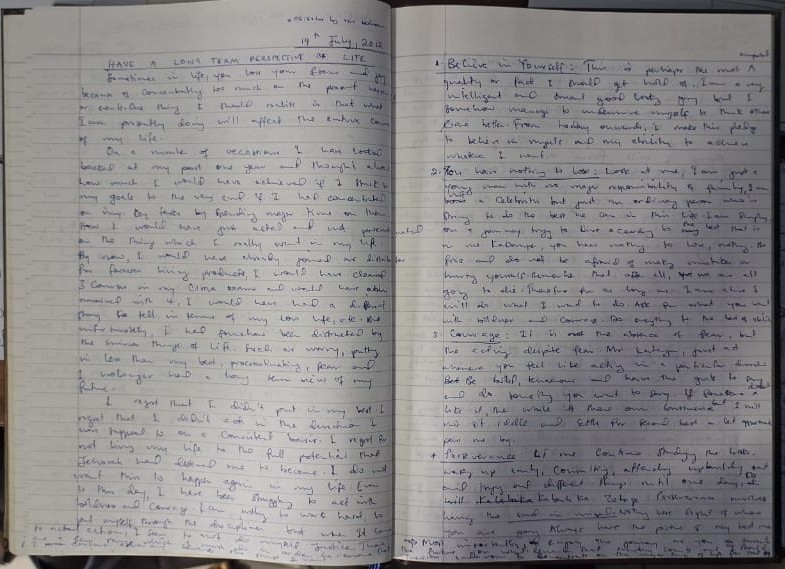 14th July, 2012
HAVE A LONG TERM PERSPECTIVE OF LIFE
Sometimes in life, you lose your focus and
because of concentrating too much on the present
or events. One thing I should realise is that what
I am presently doing will affect the entire course
of my life.
On a number of occassions I have looked
backed at my past one year and thought about
how much I would have achieved if I stuck to
my goals to the very end if I had concentrated
on my key tasks by spending major time on them
How I would have just acted and not procrastinated
on the thing which I really want in my life
By now, I would have already joined as distributor
for forever living products, I would have cleared
3 courses in my CIMA exams and would have
remained with 4, I would have had a different
story to tell in terms of my love life, etc. But
unfortunately, I had somehow been distracted by
the minor things of life. Such as worry, putting
in less than my best, procrastinating, fear and
I no longer had a long term view of my
future.
I regret that I didn't put in my best. I
regret that I didn't act in the direction I
was supposed to on a consistent basis. I regret for
not living my life to the full potential that
Jehovah had destined me to become. I do not
want this to happen again in my life. Even
to this day, I have been struggling to act with
boldness and courage. I am willing to work hard, to
put myself through the discipline but when it comes
to actual action, I seem to not do myself justice.
1. Believe in Yourself: This is perhaps the most
quality or fact I should get hold of. I am a very
intelligent and smart good looking guy but I
somehow manage to undermine myself to think others
are better. From today onwards, I make this pledge
to believe in myself and my ability to achieve
whatever I want.
2. You have nothing to lose: Look at me, I am just a
young man with no major responsibility of family, I am
not a celebrity but just an ordinary person who is
striving to do the best he can in this life. I am simply
on a journey trying to live according to the best that is
in me. you have nothing to lose, nothing. Be
free and do not be afraid of making mistakes or
hurting yourself. Remember that after all, we are all
going to die. Therefore for as long as I am alive I
will do what I want to do. Ask for what you want
with boldness and courage. Do everything to the best of
3. Courage: It is not the absence of fear, but
the acting despite fear. just act
whenever you feel like acting in a particular
But be bold, tenacious and have the guts to say
and do something you want to say. If someone
like it, the while is there own but I will
not sit idle and let opportunities
pass me by.
4. Perseverance: Let me continue studying the
waking up early, consulting, attending
and trying out different things until one day,
will Perseverance involves
having the end in mind. Not losing sight of where
you are going. Always have the picture of my
Most importantly, enjoy the journey as you